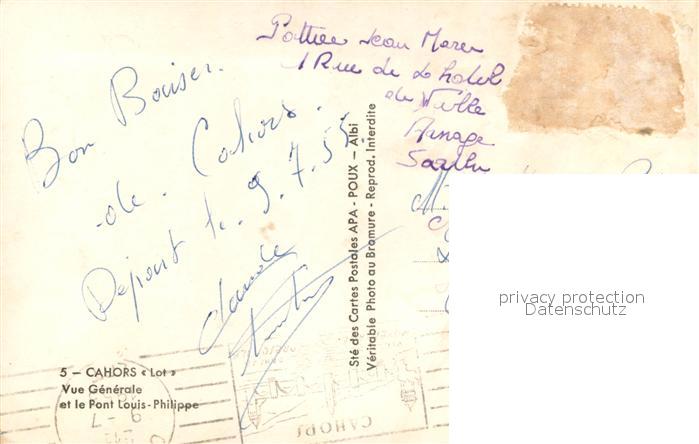 Bon Baiser.
de. Cahors.
Départ le. 9. 7. 55
claude
Jean Marc
1 Rue de L hotel
de Ville
Arnage
Sarthe
Sté des Cartes Postales APA - POUX - Albi
Véritable Photo au Bromure - Reprod. Interdite
5 — CAHORS « Lot »
Vue Générale
et le Pont Louis-Philippe
CAHORS
9 - 7
privacy protection
Datenschutz